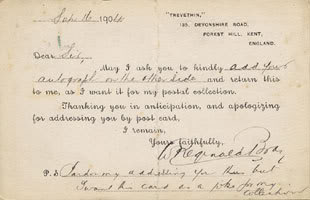 "TREVETHIN,"
135, DEVONSHIRE ROAD,
FOREST HILL, KENT,
ENGLAND.
Sep 16 1904
Dear Sir
May I ask you to kindly add your
autograph on the other side and return this
to me, as I want it for my postal collection.
Thanking you in anticipation, and apologizing
for addressing you by post card,
I remain,
Yours faithfully,
W Reginald Bray
P.S Pardon my addressing you thus but
I want this card as a for my
collection